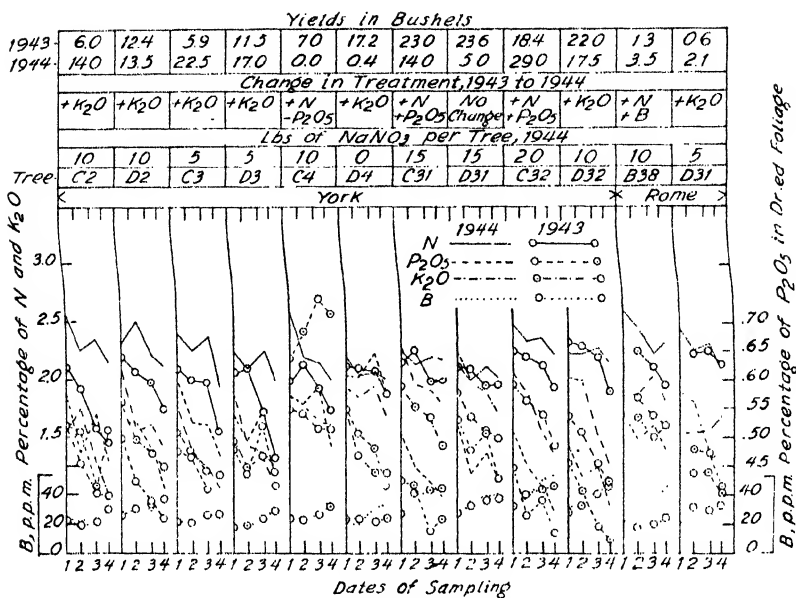 Yields in Bushels
1943 6.0 12.4 5.9 11.5 7.0 17.2 23.0 23.6 18.4 22.0 1.3 0.6
1944 14.0 13.5 22.5 17.0 0.0 0.4 14.0 5.0 29.0 17.5 3.5 2.1
Change in Treatment, 1943 to 1944
+K₂O +K₂O +K₂O +K₂O +N -P₂O₅ +K₂O +N +P₂O₅ No Change +N +P₂O₅ +K₂O +N +B +K₂O
Lbs of NaNO₃ per Tree, 1944
10 10 5 5 10 0 15 15 20 10 10 5
Tree C2 D2 C3 D3 C4 D4 C31 D31 C32 D32 B38 D31
York Rome
1944 1943
N
P₂O₅
K₂O
B
Percentage of N and K₂O
3.0
2.5
2.0
1.5
B, p.p.m.
40
20
0
.70
.65
.60
.55
.50
.45
40
20
0
Percentage of P₂O₅ in Dried Foliage
B, p.p.m.
1 2 3 4 1 2 3 4 1 2 3 4 1 2 3 4 1 2 3 4 1 2 3 4 1 2 3 4 1 2 3 4 1 2 3 4 1 2 3 4 1 2 3 4 1 2 3 4
Dates of Sampling